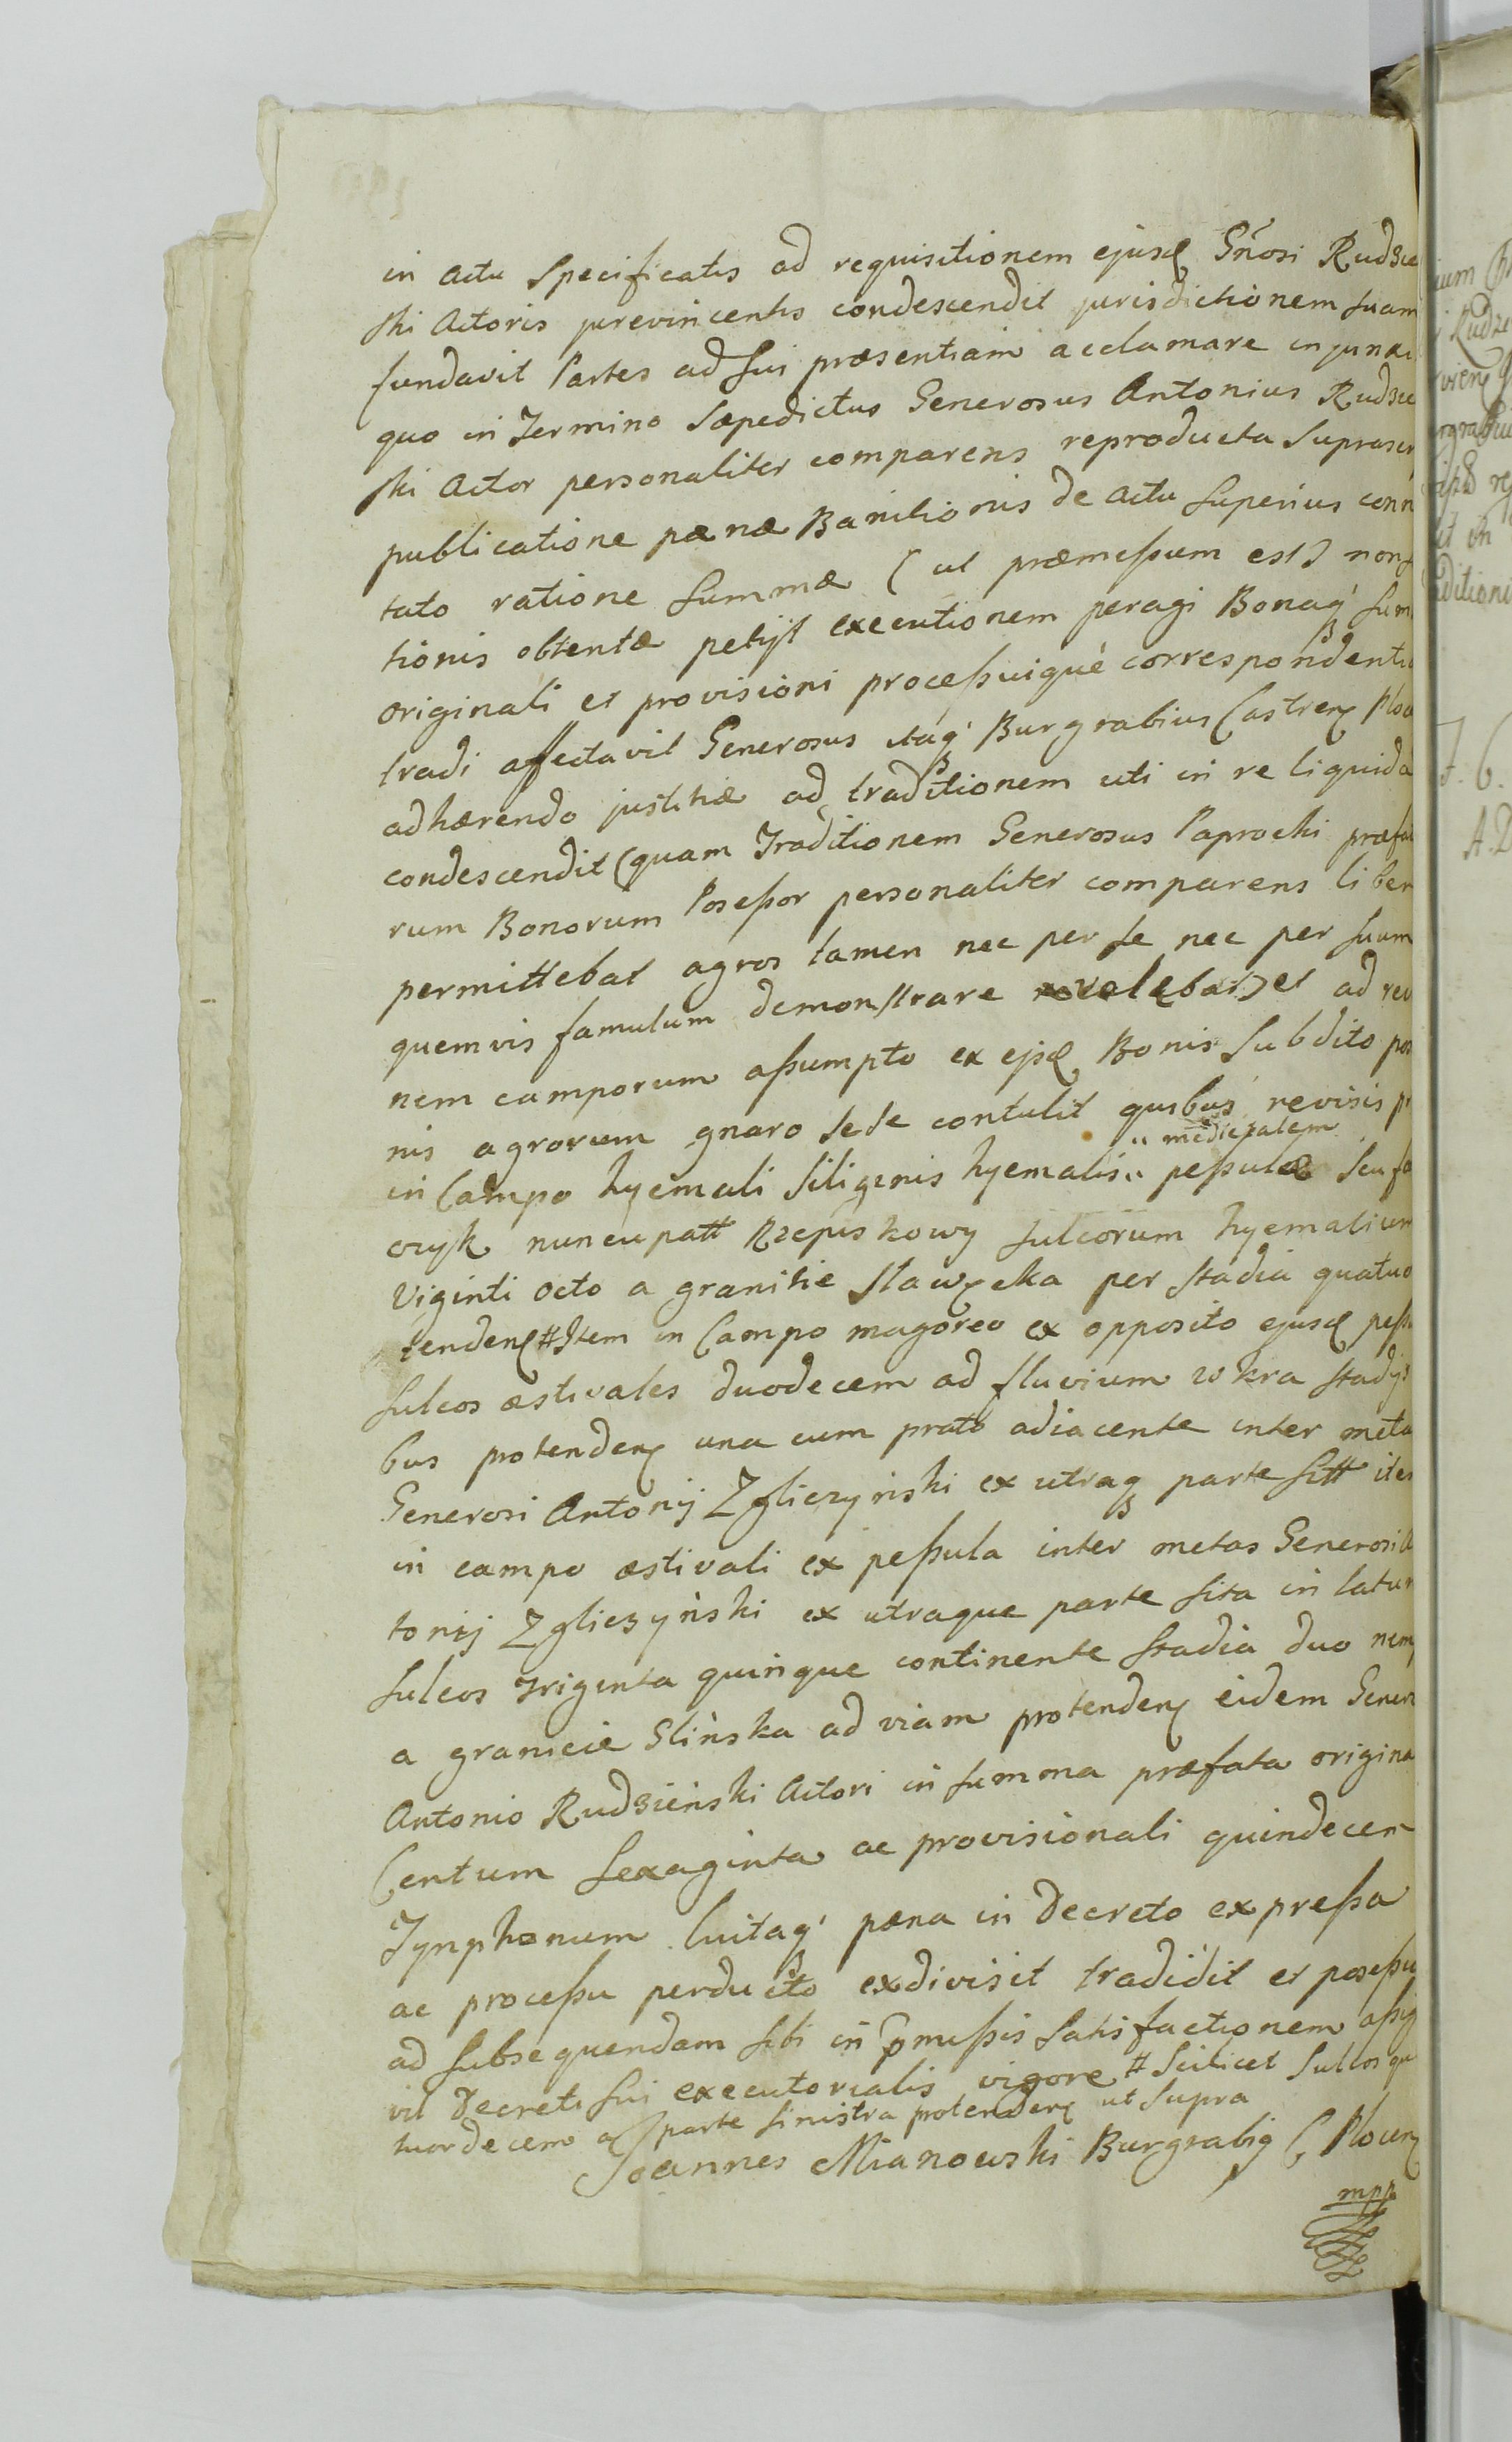 in actu Specificatis ad requisitionem ejusd Gnosi Rudzie
ski Actoris jurevincentis condescendit jurisdictionem suam
fundavit Partes ad sui præsentiam acclamare injunxi
quo in Termino Sæpedictus Generosus Antonius Rudzie
ski Actor personaliter comparens reproducta Suprascr
publicatione pænæ Banitionis de actu Superius conn
tato ratione Summæ (ut præmessum est) non
tionis obtentæ petijt executionem peragi Bonaq' sum
originali et provisioni processuiquè correspondentia
tradi affectavit Generosus itaq' Burgrabius Castren Ploc
adhærendo justitiæ ad traditionem uti in re liquida
condescendit (quam Traditionem Generosus Paprocki præfat
rum Bonorum Posessor personaliter comparens liber
permittebat agros tamen nec per se nec per suum
quemvis famulum demonstrare volebat) et ad rev
nem camporum assumpto ex ejsd Bonis Subdito po
nis agrorum gnaro sese contulit quibus revisis pr
" medietatem
in Campo hyemali Siliginis hyemalis " pessulæ Seu fa
czyk nuncupatt Rzepiskowy sulcorum hyemalium
Viginti octo a granitie Slawęcka per stadia quatuo
tenden # Item in Campo magoreo ex opposito ejusd pess
sulcos æstivales duodecem ad fluvium wkra stadijs
bus protenden una cum prato adiacente inter meta
Generosi Antonij Zgliczyński ex utraq parte sitt ite
in campo æstivali ex pessula inter metas Generosi A
tonij Zgliczyński ex utraque parte sita in latu
sulcos Triginta quinque continente stadia duo nem
a granicie Slinska ad viam protenden eidem Gener
Antonio Rudzieński Actori in summa præfata origina
Centum Sexaginta ac provisionali quindecem
Tynphonum luitaq' pæna in Decreto expressa
ac processu perducto exdivisit tradidit et posessu
ad subsequendam sibi in pmissis Satisfactionem assig
vit Decreti sui executorialis vigore # Scilicet Sulcos qu
tuordecem a parte sinistra protenden ut supra
Joannes Mianowski Burgrabig C Plocen
mpp